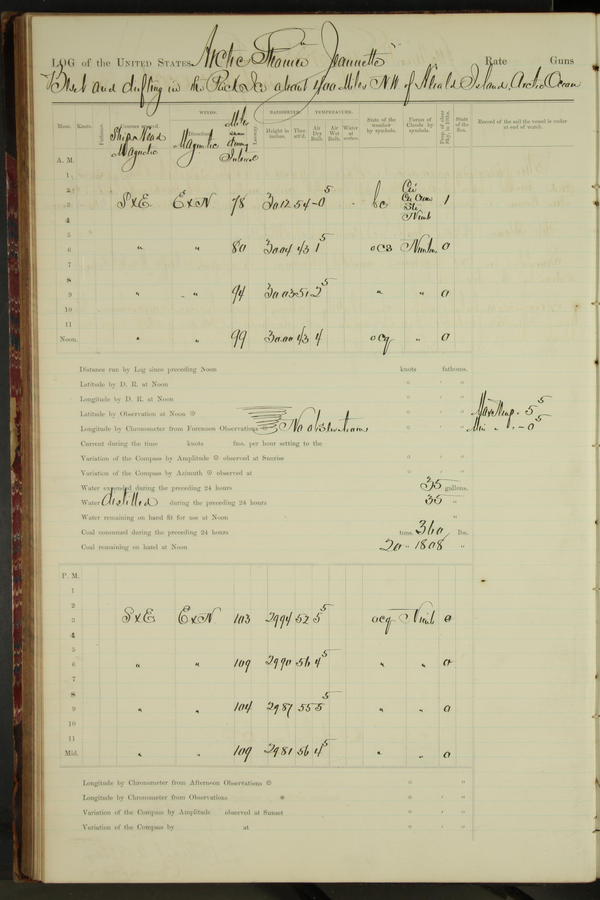 LOG of the UNITED STATES Arctic Steamer "Jeannette" Rate Guns
Beset and drifting in the Pack Ice about 400 Miles N.W. of Herald Island, Arctic Ocean
WINDS. BAROMETER. TEMPERATURE.
Hour. Knots. Fathoms. Courses steered. Direction. Leeway. Height in inches. Ther. att'd. Air Dry Bulb. Air Wet Bulb. Water at surface. State of the weather by symbols. Forms of Clouds by symbols. Prop. of clear sky, in 10ths. State of the Sea. Record of the sail the vessel is under at end of watch.
Ship's Head Magnetic Magnetic Miles during Interval
A. M.
1
2
3 S x E E x N 78 30 12 54 -0 5 bc Cir Cir Cum Str Nimb 1
4
5
6 " " 80 30.04 43 1 5 ocs Nimb. 0
7
8
9 " " 94 30.03 51 -2 5 " " 0
10
11
Noon. " " 99 30.00 43 4 ocq " 0
Distance run by Log since preceding Noon knots fathoms.
Latitude by D. R. at Noon ° ' "
Longitude by D. R. at Noon ° ' "
Latitude by Observation at Noon ° ' " Max Temp. 5 5
Longitude by Chronometer from Forenoon Observations No observations ° ' " Min " -0 5
Current during the time knots fms. per hour setting to the
Variation of the Compass by Amplitude observed at Sunrise ° ' "
Variation of the Compass by Azimuth observed at ° ' "
Water expended during the preceding 24 hours 35 gallons.
Water distilled during the preceding 24 hours 35 "
Water remaining on hand fit for use at Noon "
Coal consumed during the preceding 24 hours tons. 360 lbs.
Coal remaining on hand at Noon 20 " 1808 "
P. M.
1
2
3 S x E E x N 103 29 94 52 5 5 ocq Nimb 0
4
5
6 " " 109 29 90 56 4 5 " " 0
7
8
9 " " 104 29 87 55 5 5 " " 0
10
11
Mid. " " 109 29 81 56 4 5 " " 0
Longitude by Chronometer from Afternoon Observations ° "
Longitude by Chronometer from Observations ° ' "
Variation of the Compass by Amplitude observed at Sunset ° ' "
Variation of the Compass by at ° ' "